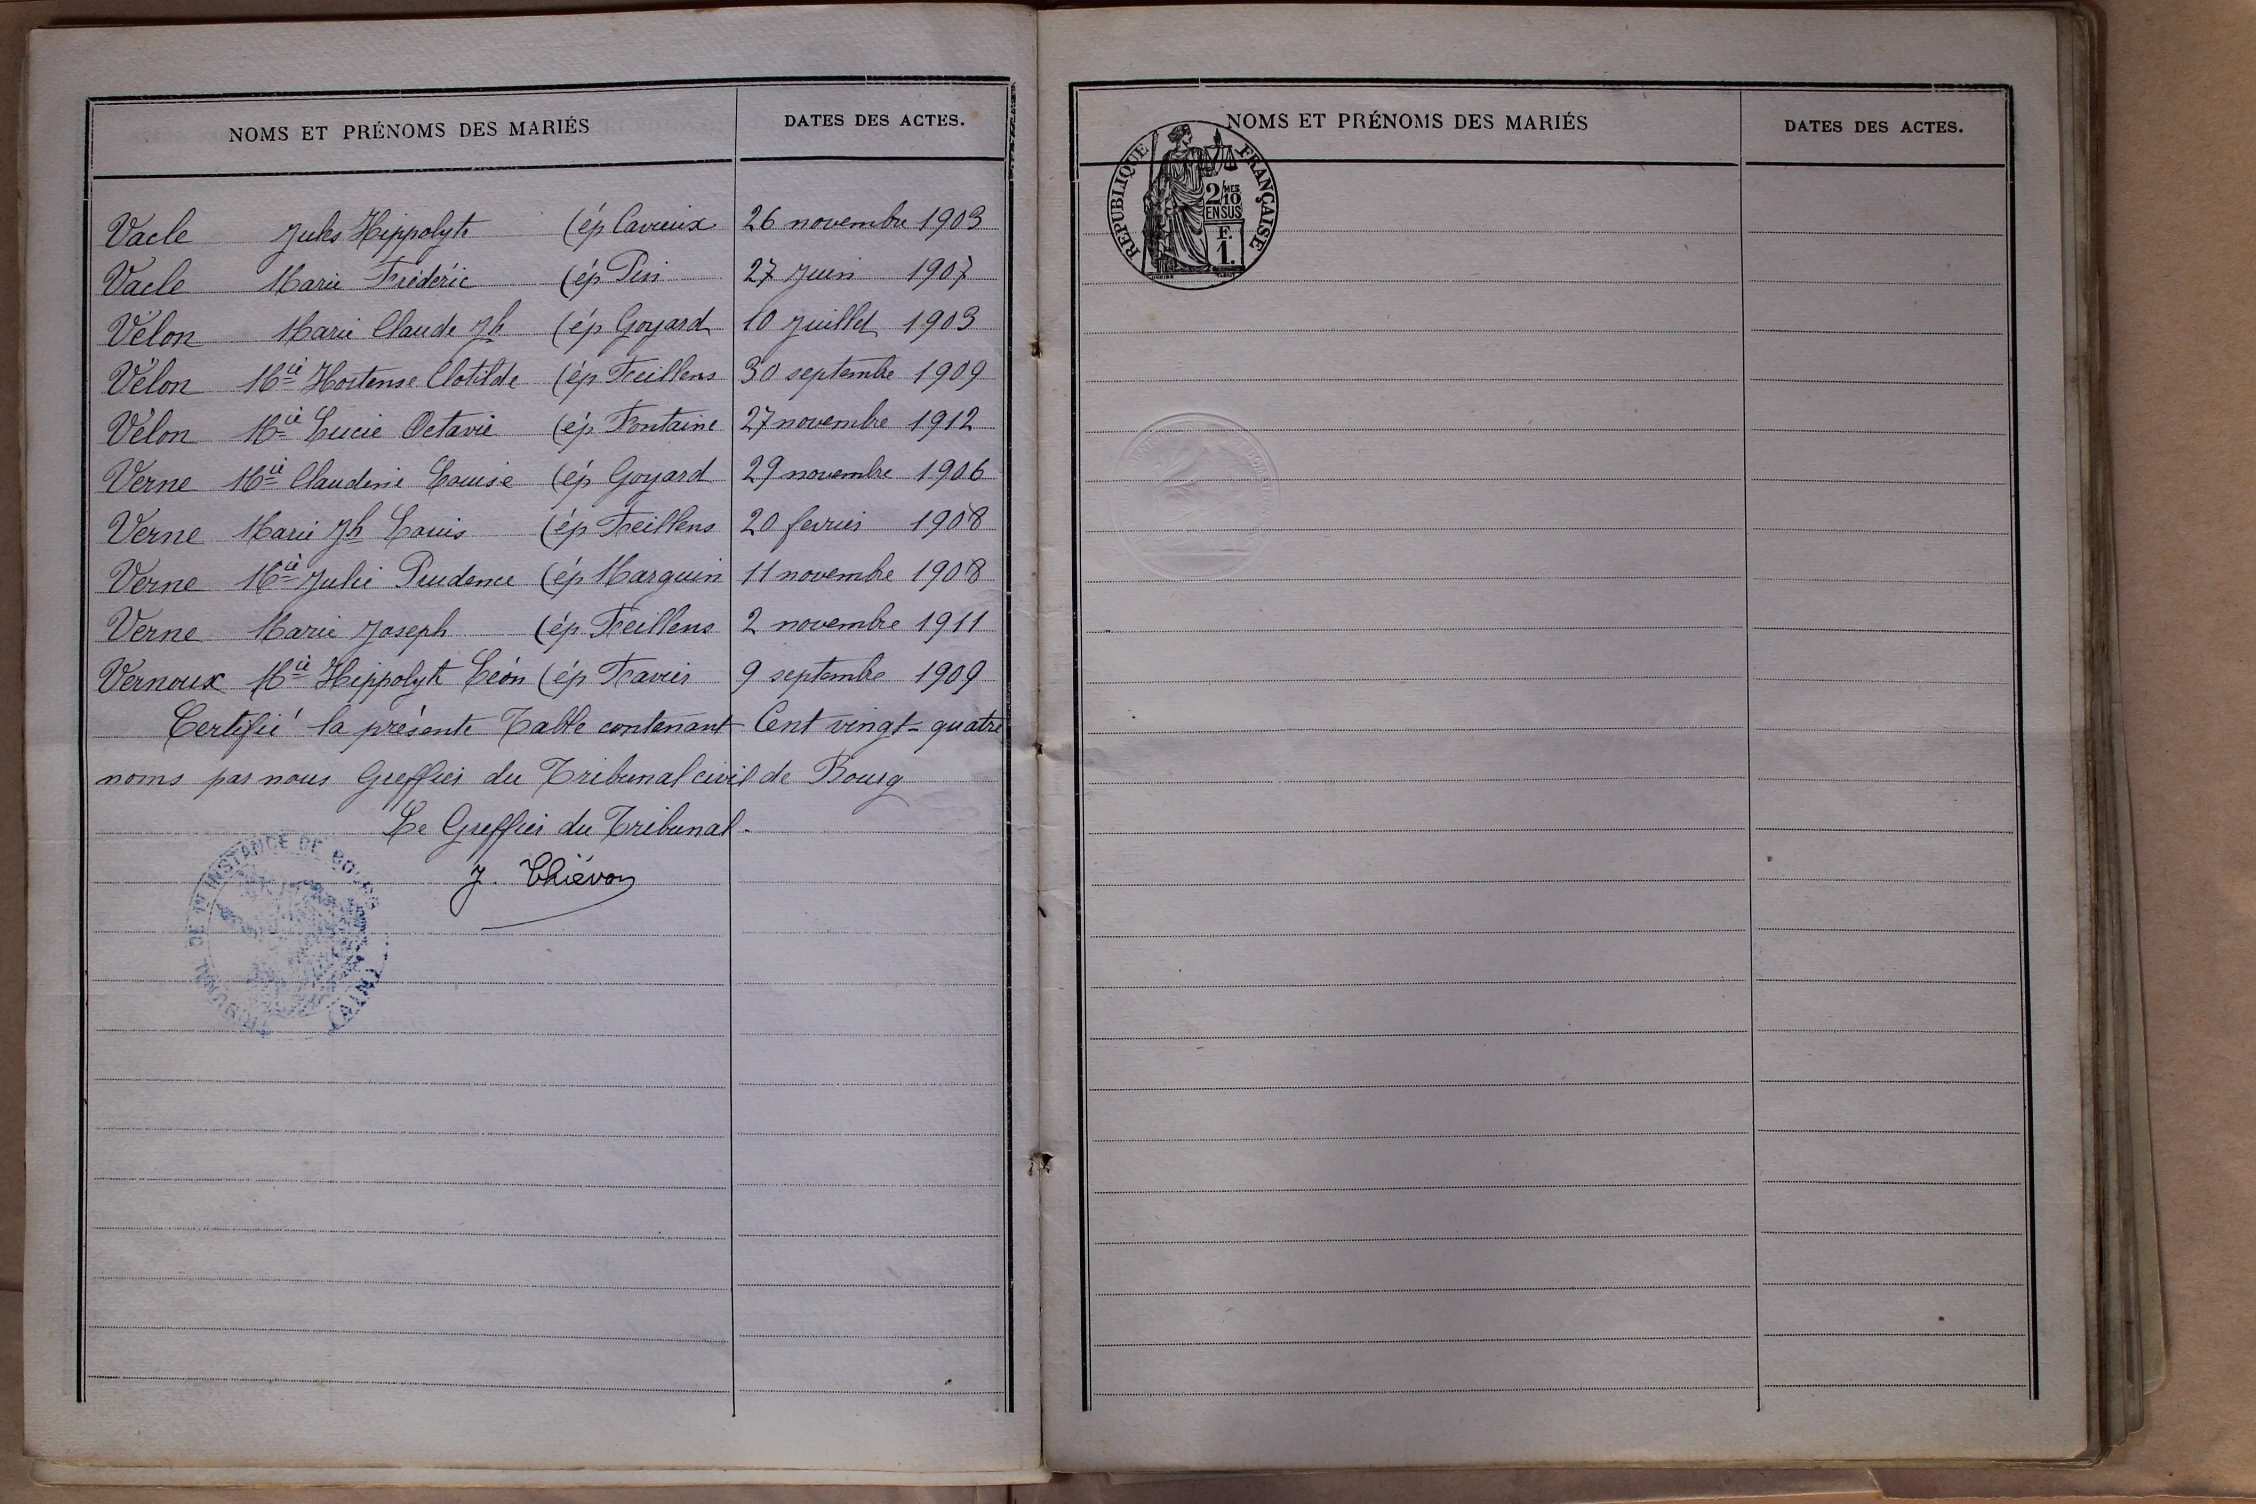 NOMS ET PRÉNOMS DES MARIÉS DATES DES ACTES.
Vacle Jules Hippolyte (ép Cavieux 26 novembre 1903
Vacle Marie Frédéric (ép Pin 27 Juin 1907
Vélon Marie Claude Jh (ép Goyard 10 Juillet 1903
Vélon Mie Hortense Clotilde (ép Feillens 30 septembre 1909
Vélon Mie Lucie Octavie (ép Fontaine 27 novembre 1912
Verne Mie Claudine Louise (ép Goyard 29 novembre 1906
Verne Marie Jh Louis (ép Feillens 20 fevrier 1908
Verne Mie Julie Prudence (ép Marguin 11 novembre 1908
Verne Marie Joseph (ép Feillens 2 novembre 1911
Vernoux Mie Hippolyte Léon (ép Favier 9 septembre 1909
Certifié la présente Table contenant Cent vingt-quatre
noms par nous Greffier du Tribunal civil de Bourg
Le Greffier du Tribunal.
J. Thiévon
TRIBUNAL DE 1re INSTANCE DE BOURG (AIN)
NOMS ET PRÉNOMS DES MARIÉS DATES DES ACTES.
REPUBLIQUE FRANÇAISE
2/10 MES
EN SUS
F.
1.